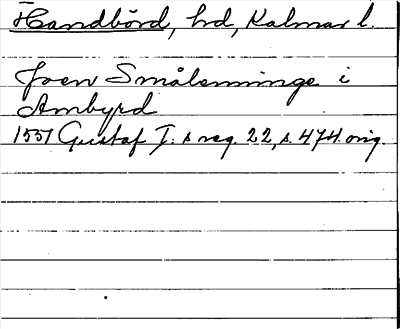 Handbörd, hd, Kalmar l.
Joen Smålenninge i
Ambyrd
1551 Gustaf I:s reg. 22, s. 474. orig.